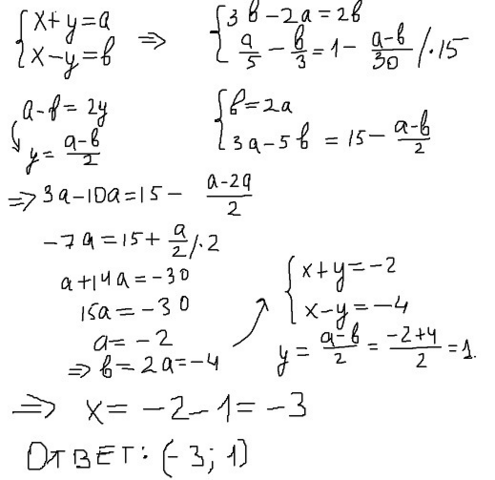 {x+y=a
{x-y=b
=> {3b-2a=2b
{a/5 - b/3 = 1 - (a-b)/30 /·15
a-b=2y
y = (a-b)/2
{b=2a
{3a-5b = 15 - (a-b)/2
=> 3a-10a=15 - (a-2a)/2
-7a=15+ a/2 /·2
a+14a=-30
15a=-30
a=-2
=> b=2a=-4
{x+y=-2
{x-y=-4
y = (a-b)/2 = (-2+4)/2 = 1.
=> x= -2-1= -3
ОТВЕТ: (-3; 1)